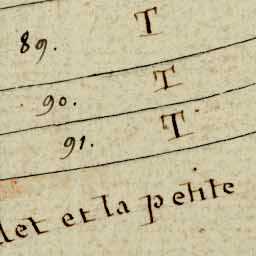 89. T
90. T
91. T
et et la petite